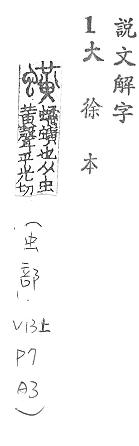 説文解字
1大徐本
蟥
𧑐蟥也从虫
黄聲乎光切
(虫部
V13上
P7
A3)